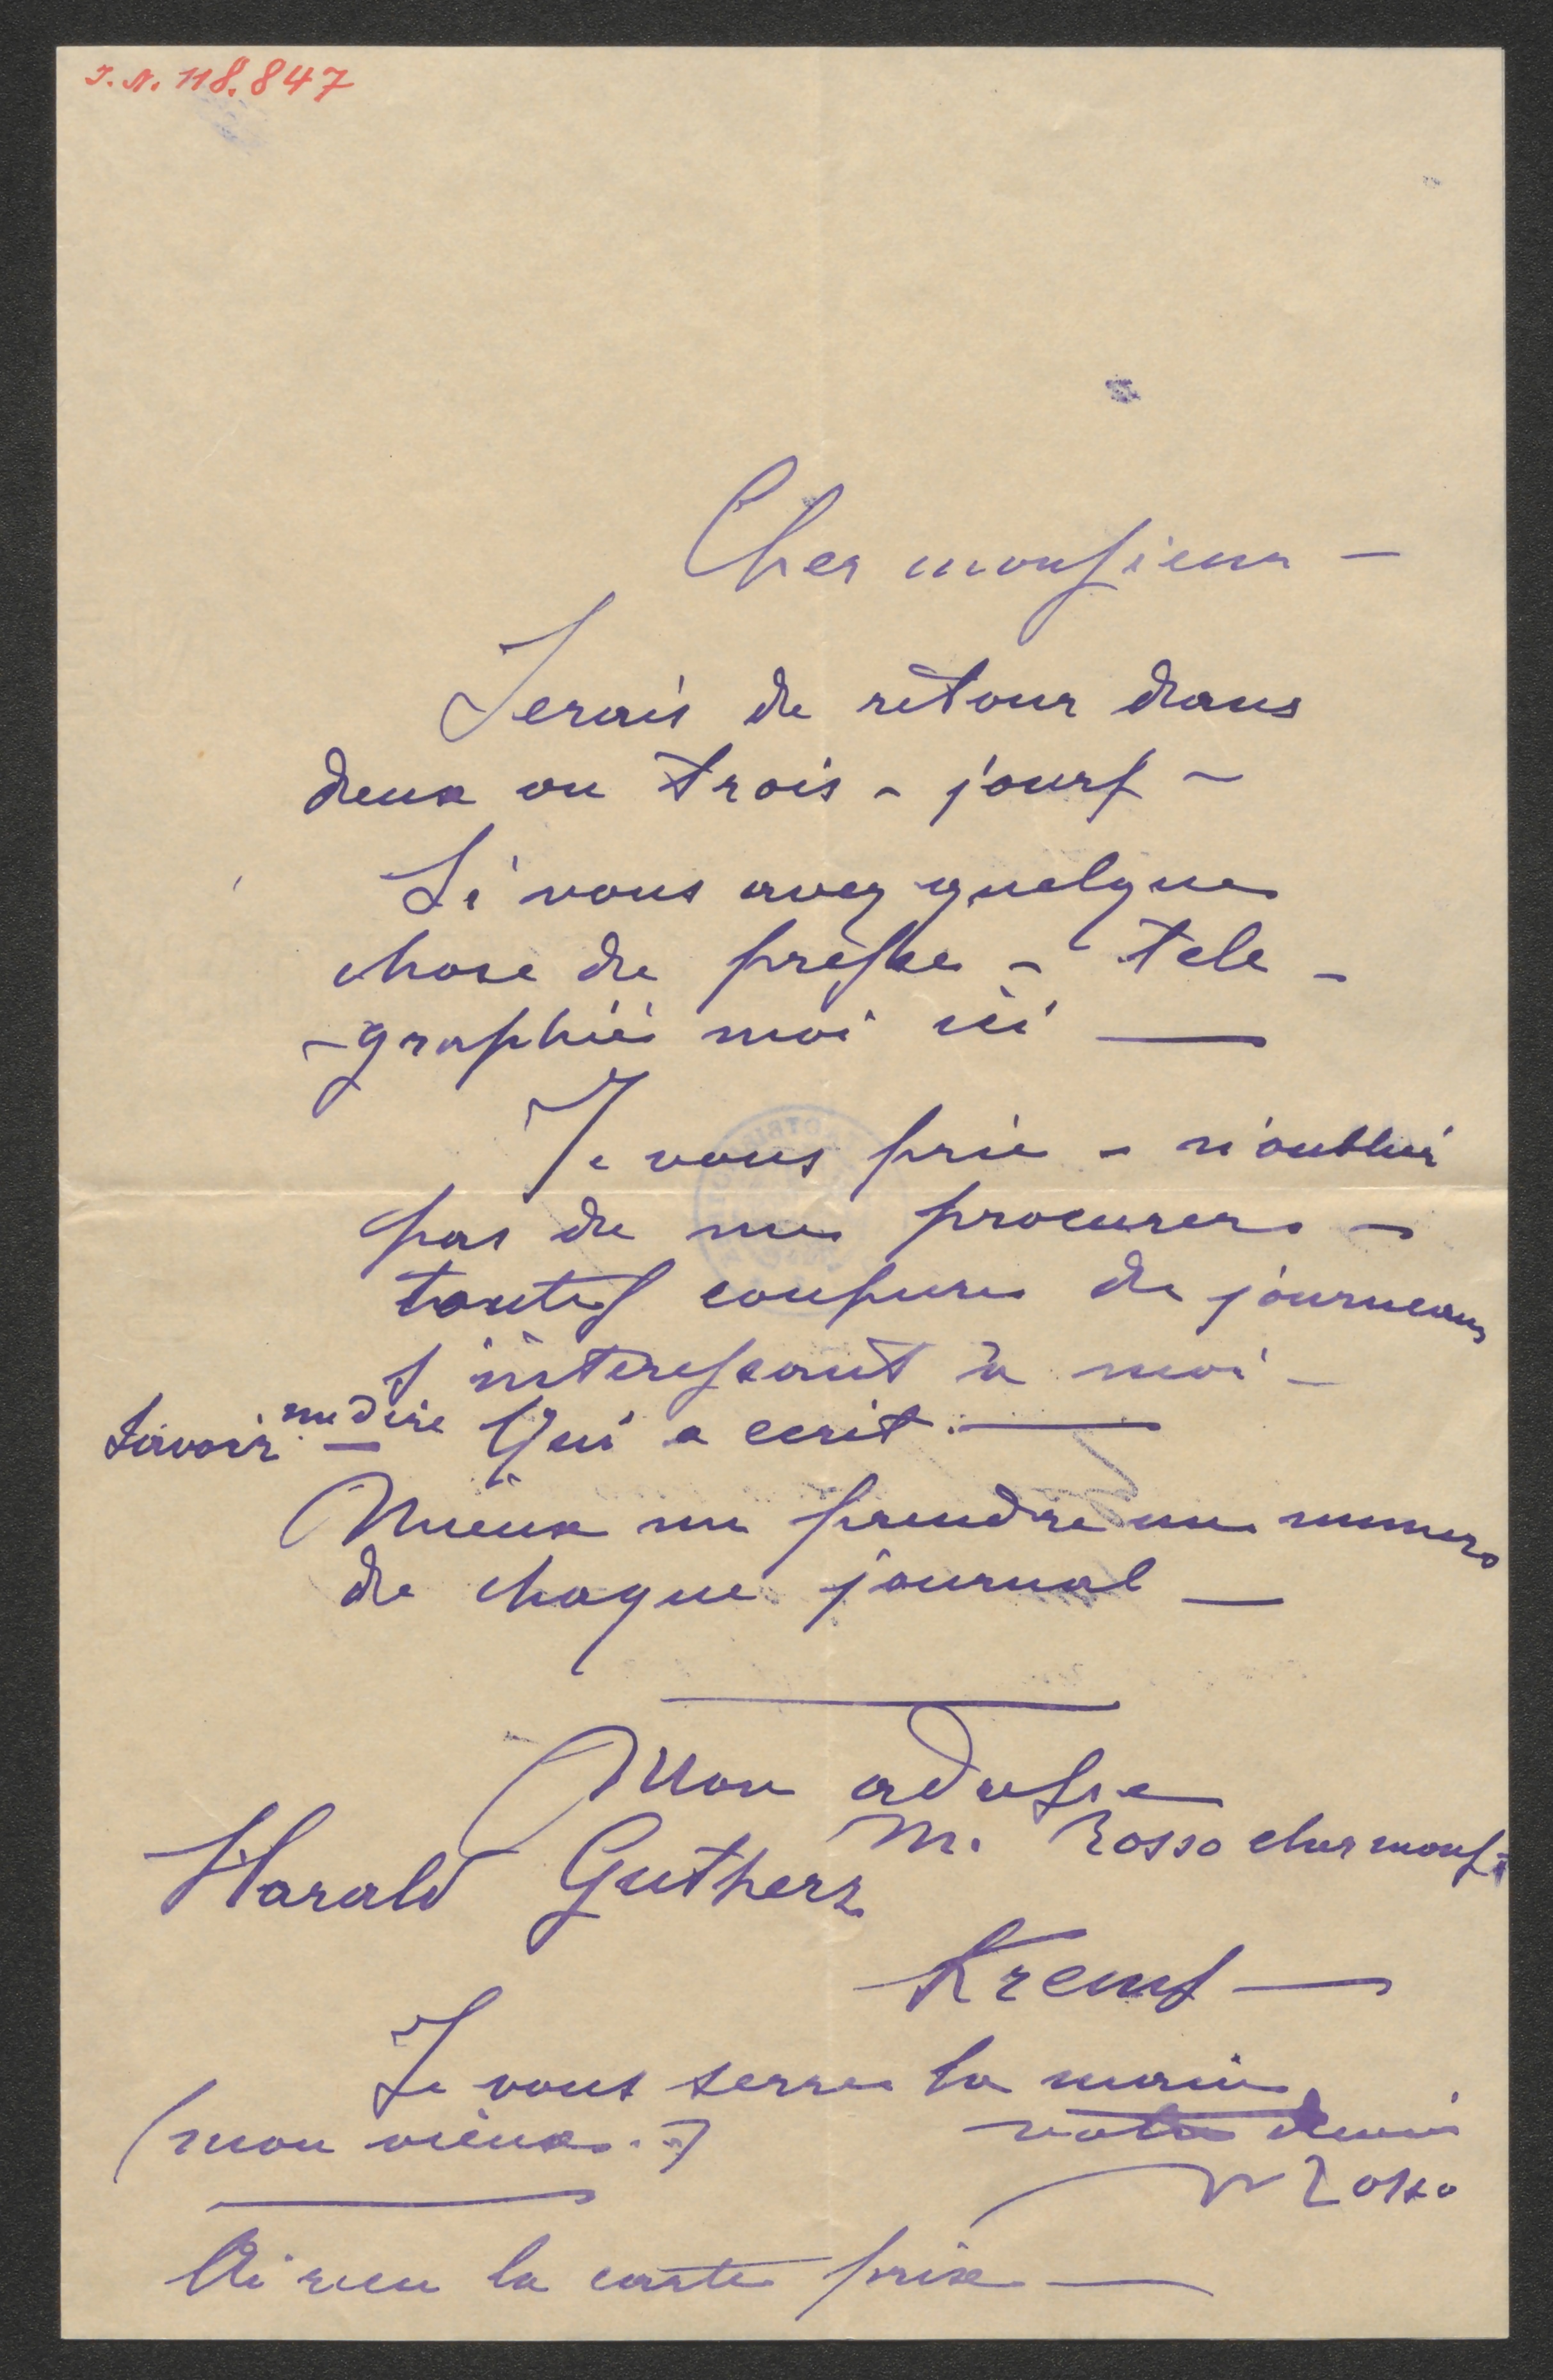 J.N. 118.847
Cher monsieur –
Serais de retour dans
deux ou trois – jours –
Si vous avez quelque
chose de presse – tele –
– graphiéi moi ici —
Je vous prie – n'oubliéi
pas de me procurer –
toutes coupures de journeaux
s'interessant à moi –
Savoir me dire Qui a ecrit. —
Mieux me prendre un numero
de chaque journal —
Mon adresse
M. Rosso cher mons
Harald Gutherz
Krems —
Je vous serre la main
(mon vieux.)
votre
Rosso
Ai recu la carte prise —